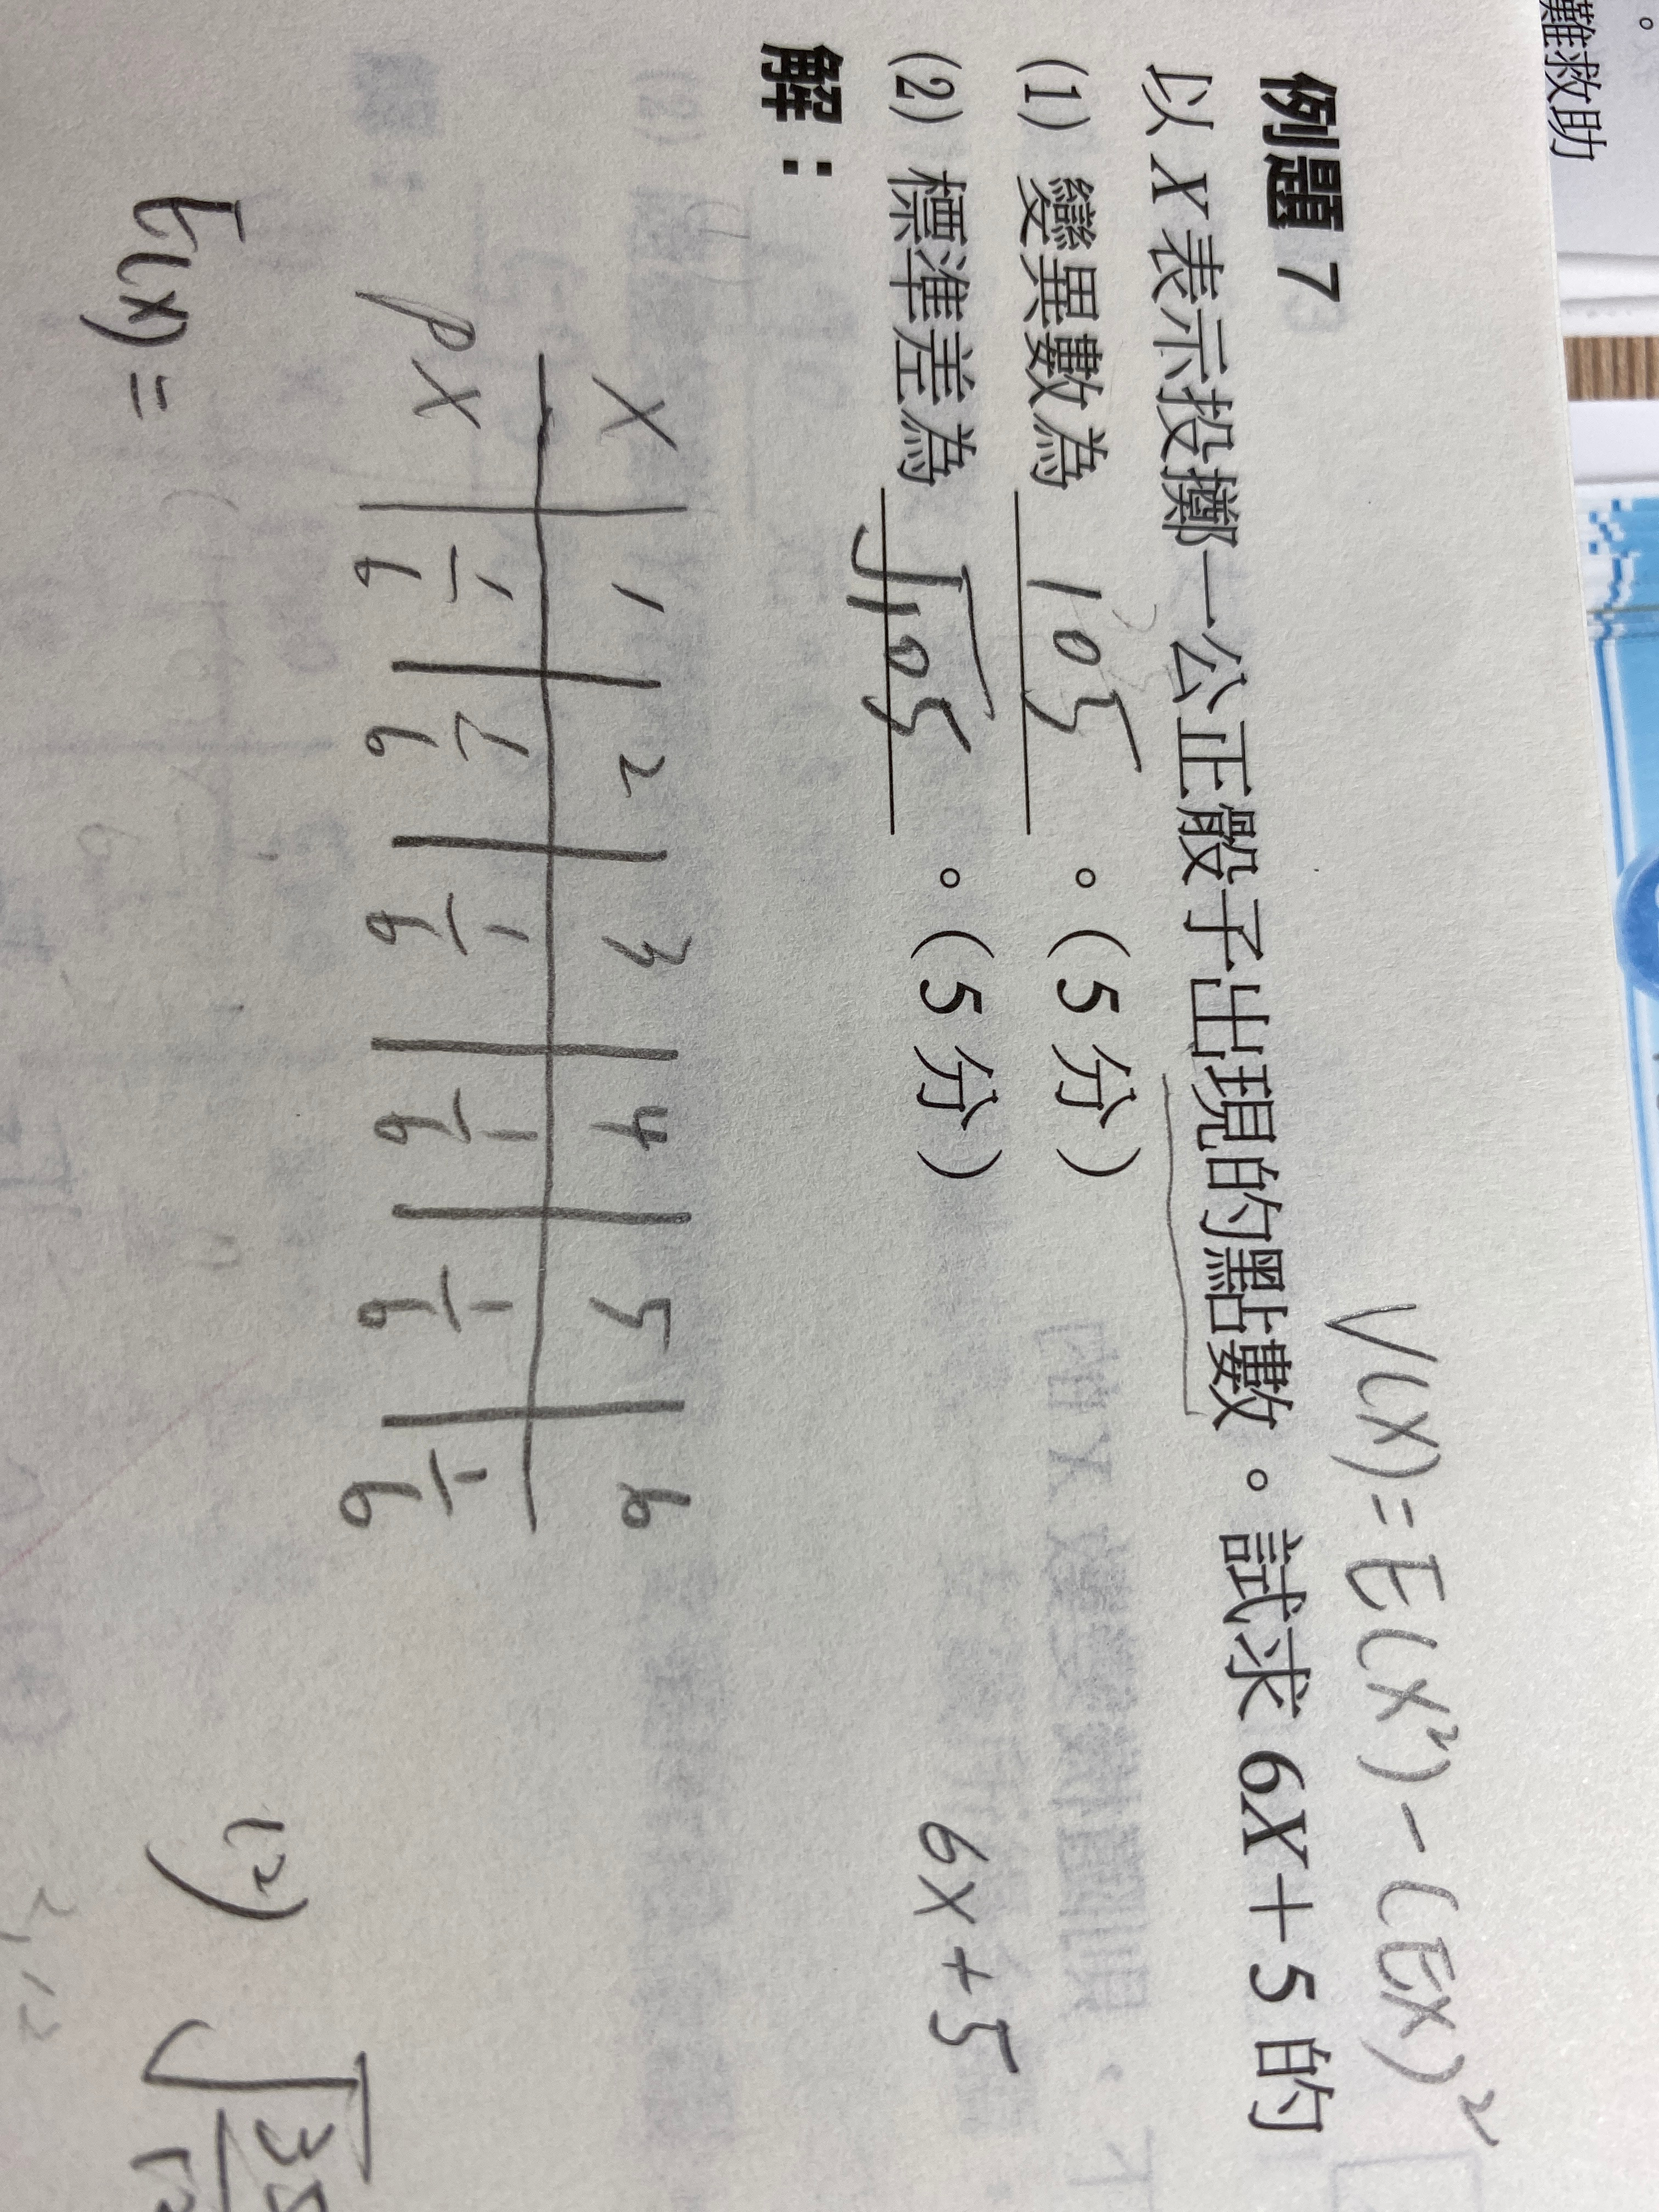 難救助
V(X)=E(X²)-(EX)²
例題 7
以 X 表示投擲一公正骰子出現的點數。試求 6X+5 的
(1) 變異數為 105 。(5 分)
(2) 標準差為 √105 。(5 分)
6X+5
解：
X 1 2 3 4 5 6
PX 1/6 1/6 1/6 1/6 1/6 1/6
E(X)=
(2)